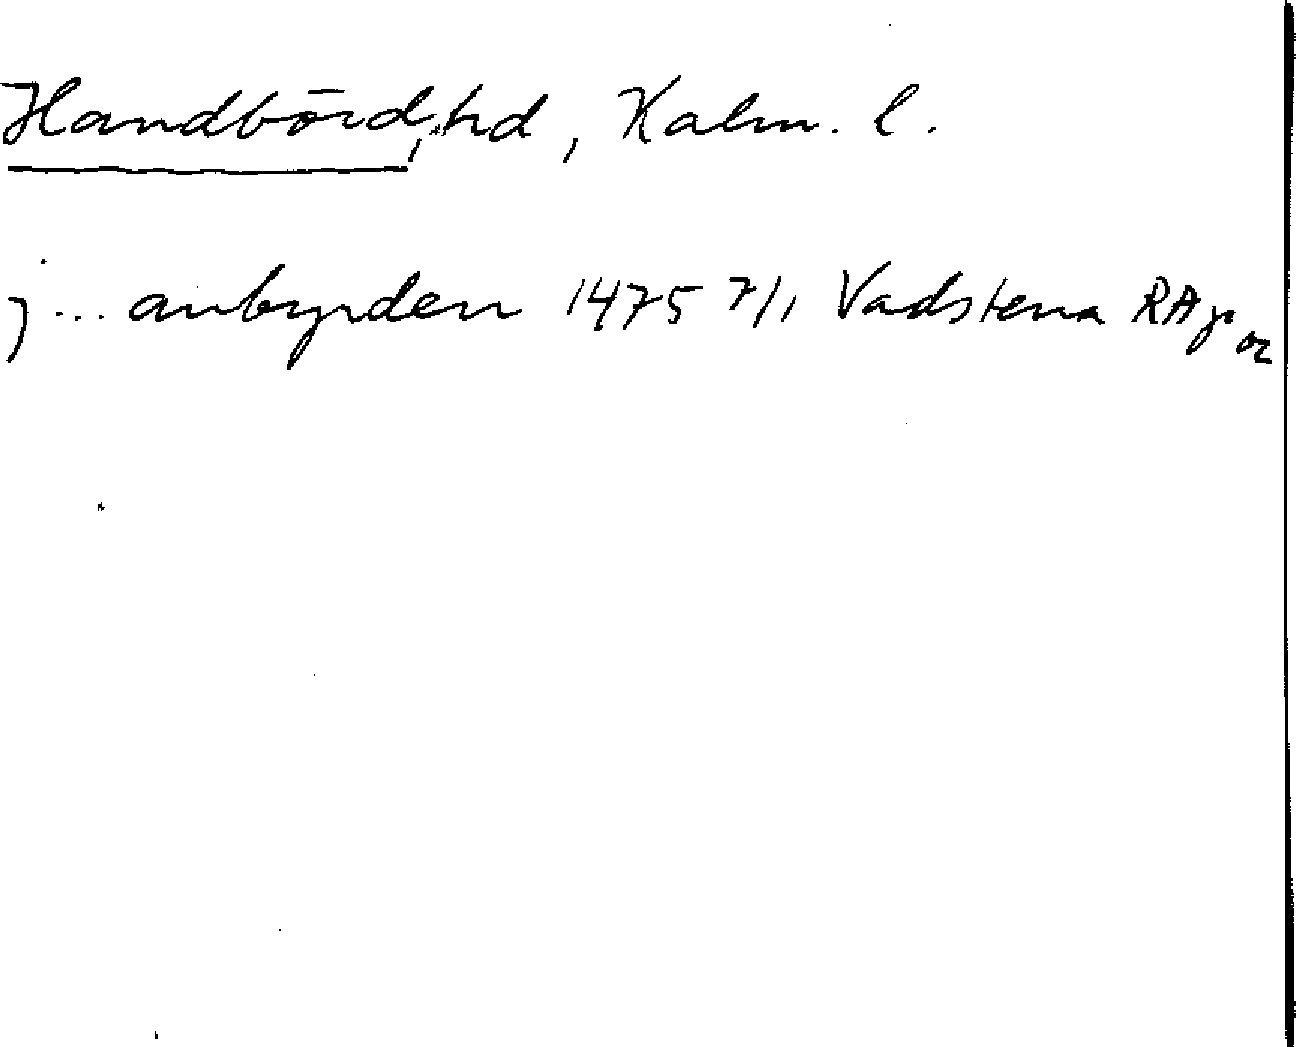 Handbörd, hd, Kalm. l.
j ... anbyrden 1475 7/1 Vadstena RAp or